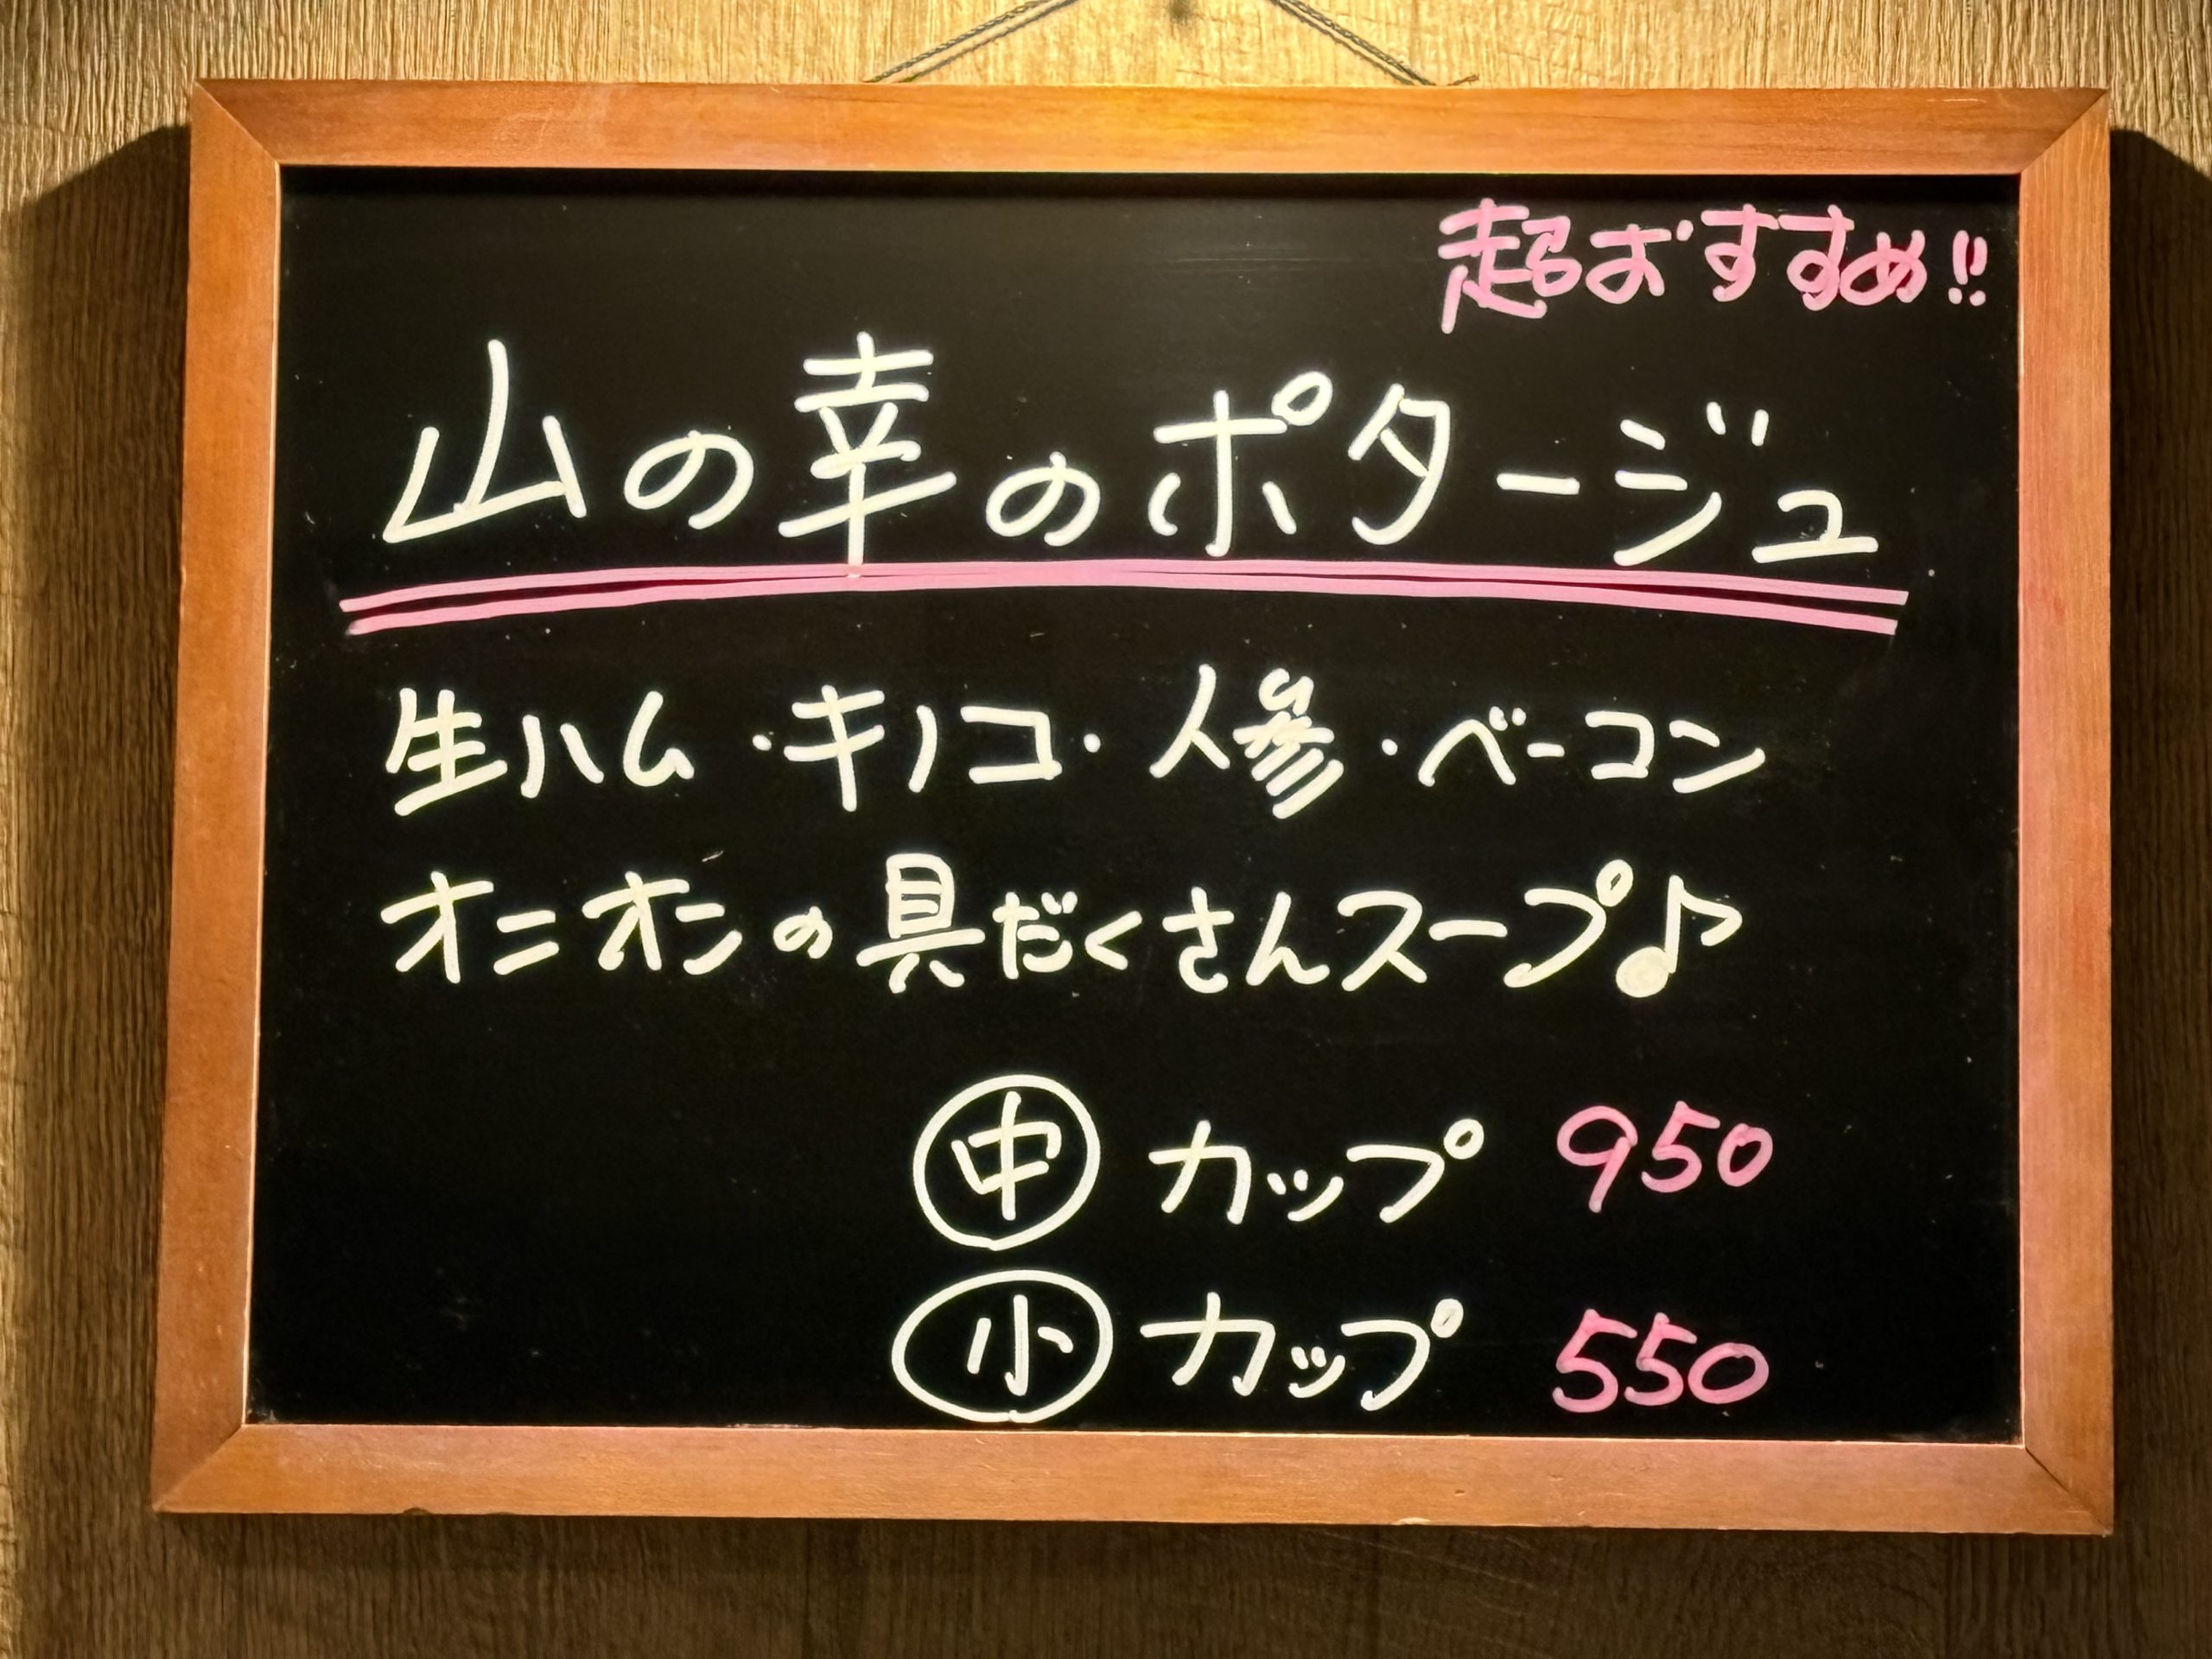 超おすすめ!!
山の幸のポタージュ
生ハム・キノコ・人参・ベーコン
オニオンの具だくさんスープ♪
㊥カップ 950
㊙カップ 550